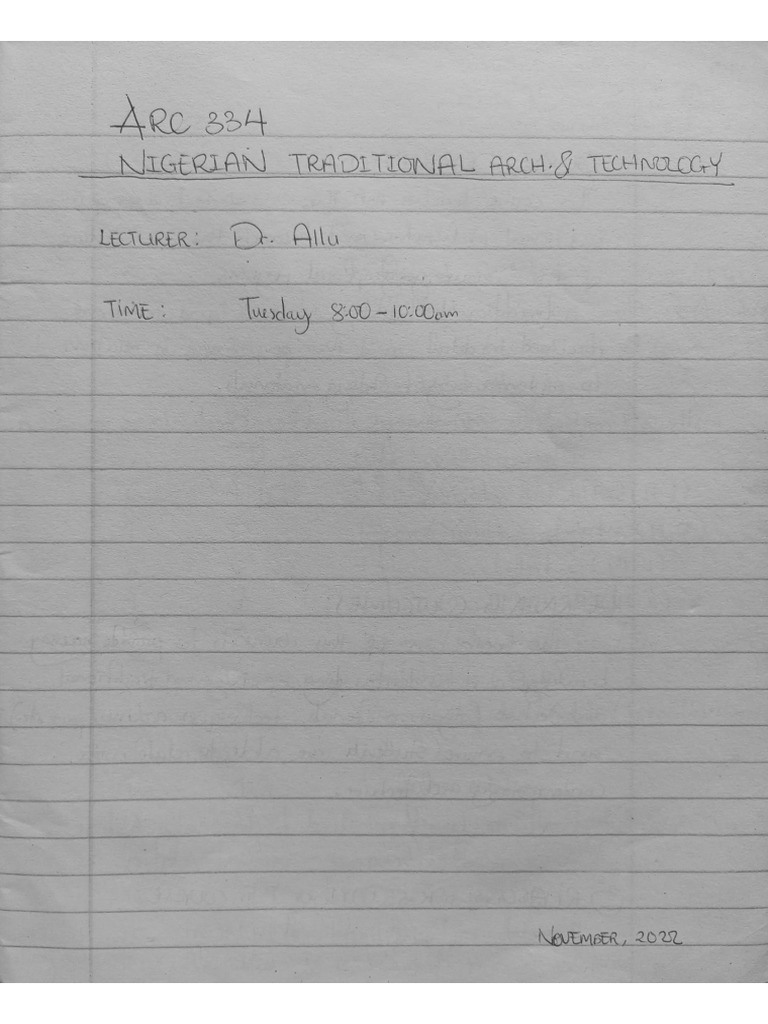 ARC 334
NIGERIAN TRADITIONAL ARCH. & TECHNOLOGY
LECTURER: Dr. Allu
TIME: Tuesday 8:00 – 10:00am
NOVEMBER, 2022